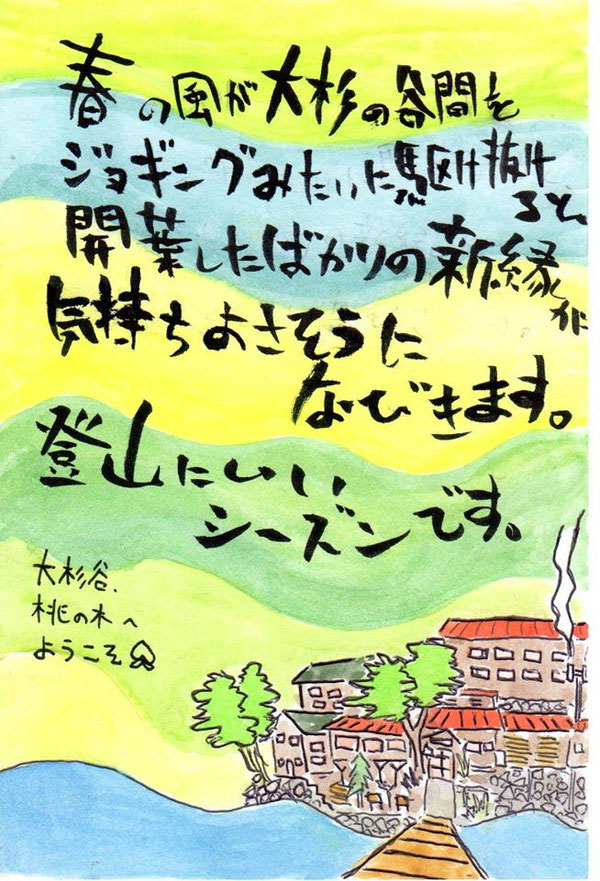 春の風が大杉の谷間を
ジョギングみたいに駆け抜け
ると、
開葉したばかりの新緑が
気持ちよさそうに
なびきます。
登山にいい
シーズンです。
大杉谷、
桃の木へ
ようこそ